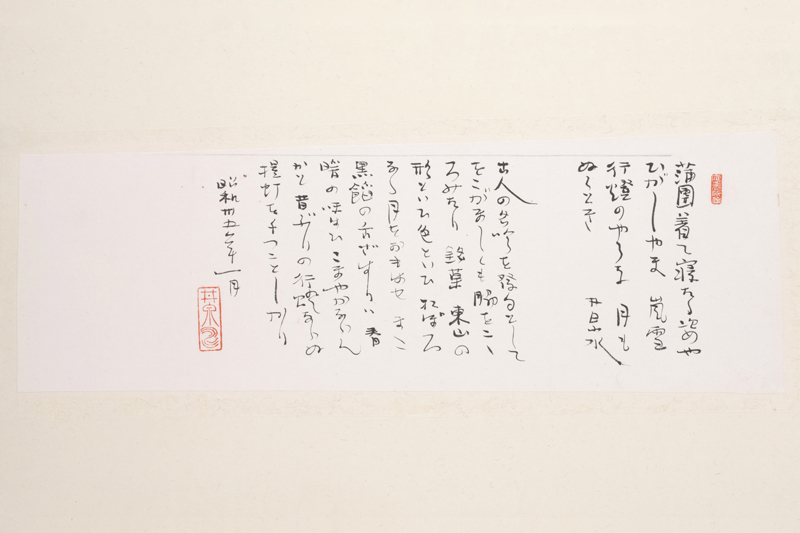 蒲團着て寝たる姿や
ひがしやま 嵐雪
行燈のやうな 月も
ぬくとき 井泉水
古人の名吟を發句として
をこがましくも脇をここ
ろみたり 銘菓 東山の
形といひ色といひ おぼろ
なる月をおもはせ まこ
黒餡の舌ざはりハ 春
暗の味はひこまやかならん
かと昔ぶりの行燈ならぬ
提灯を
昭和卅五年 一月